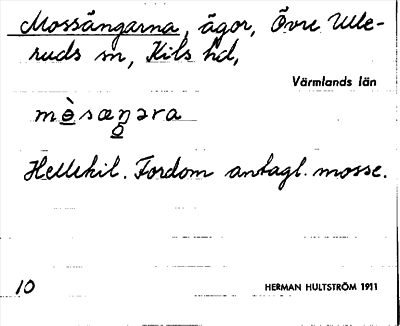 Mossängarna, ägor, Övre Ulle-
ruds sn, Kils hd,
Värmlands län
mo̠̊̀sæŋəra
Hellekil. Fordom antagl. mosse.
10
HERMAN HULTSTRÖM 1911